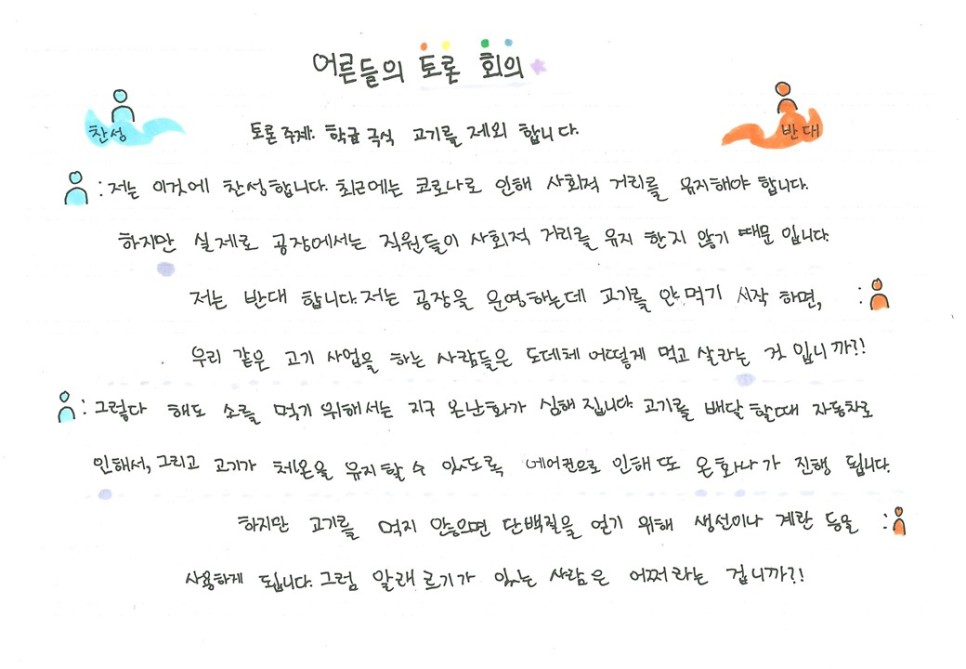 어른들의 토론 회의
찬성
반대
토론 주제: 학급 급식 고기를 제외 합니다.
: 저는 이것에 찬성합니다. 최근에는 코로나로 인해 사회적 거리를 유지해야 합니다.
하지만 실제로 공장에서는 직원들이 사회적 거리를 유지 한지 않기 때문 입니다.
저는 반대 합니다. 저는 공장을 운영하는데 고기를 안 먹기 시작 하면, :
우리 같은 고기 사업을 하는 사람들은 도데체 어떻게 먹고 살라는 것 입니까?!
: 그렇다 해도 소를 먹기 위해서는 지구 온난화가 심해 집니다. 고기를 배달 할때 자동차로
인해서, 그리고 고기가 체온을 유지할 수 있도록 에어컨으로 인해 또 온화나가 진행 됩니다.
하지만 고기를 먹지 안흐면 단백질을 얻기 위해 생선이나 계란 등을 :
사용하게 됩니다. 그럼 알래르기가 있는 사람은 어쩌라는 겁니까?!